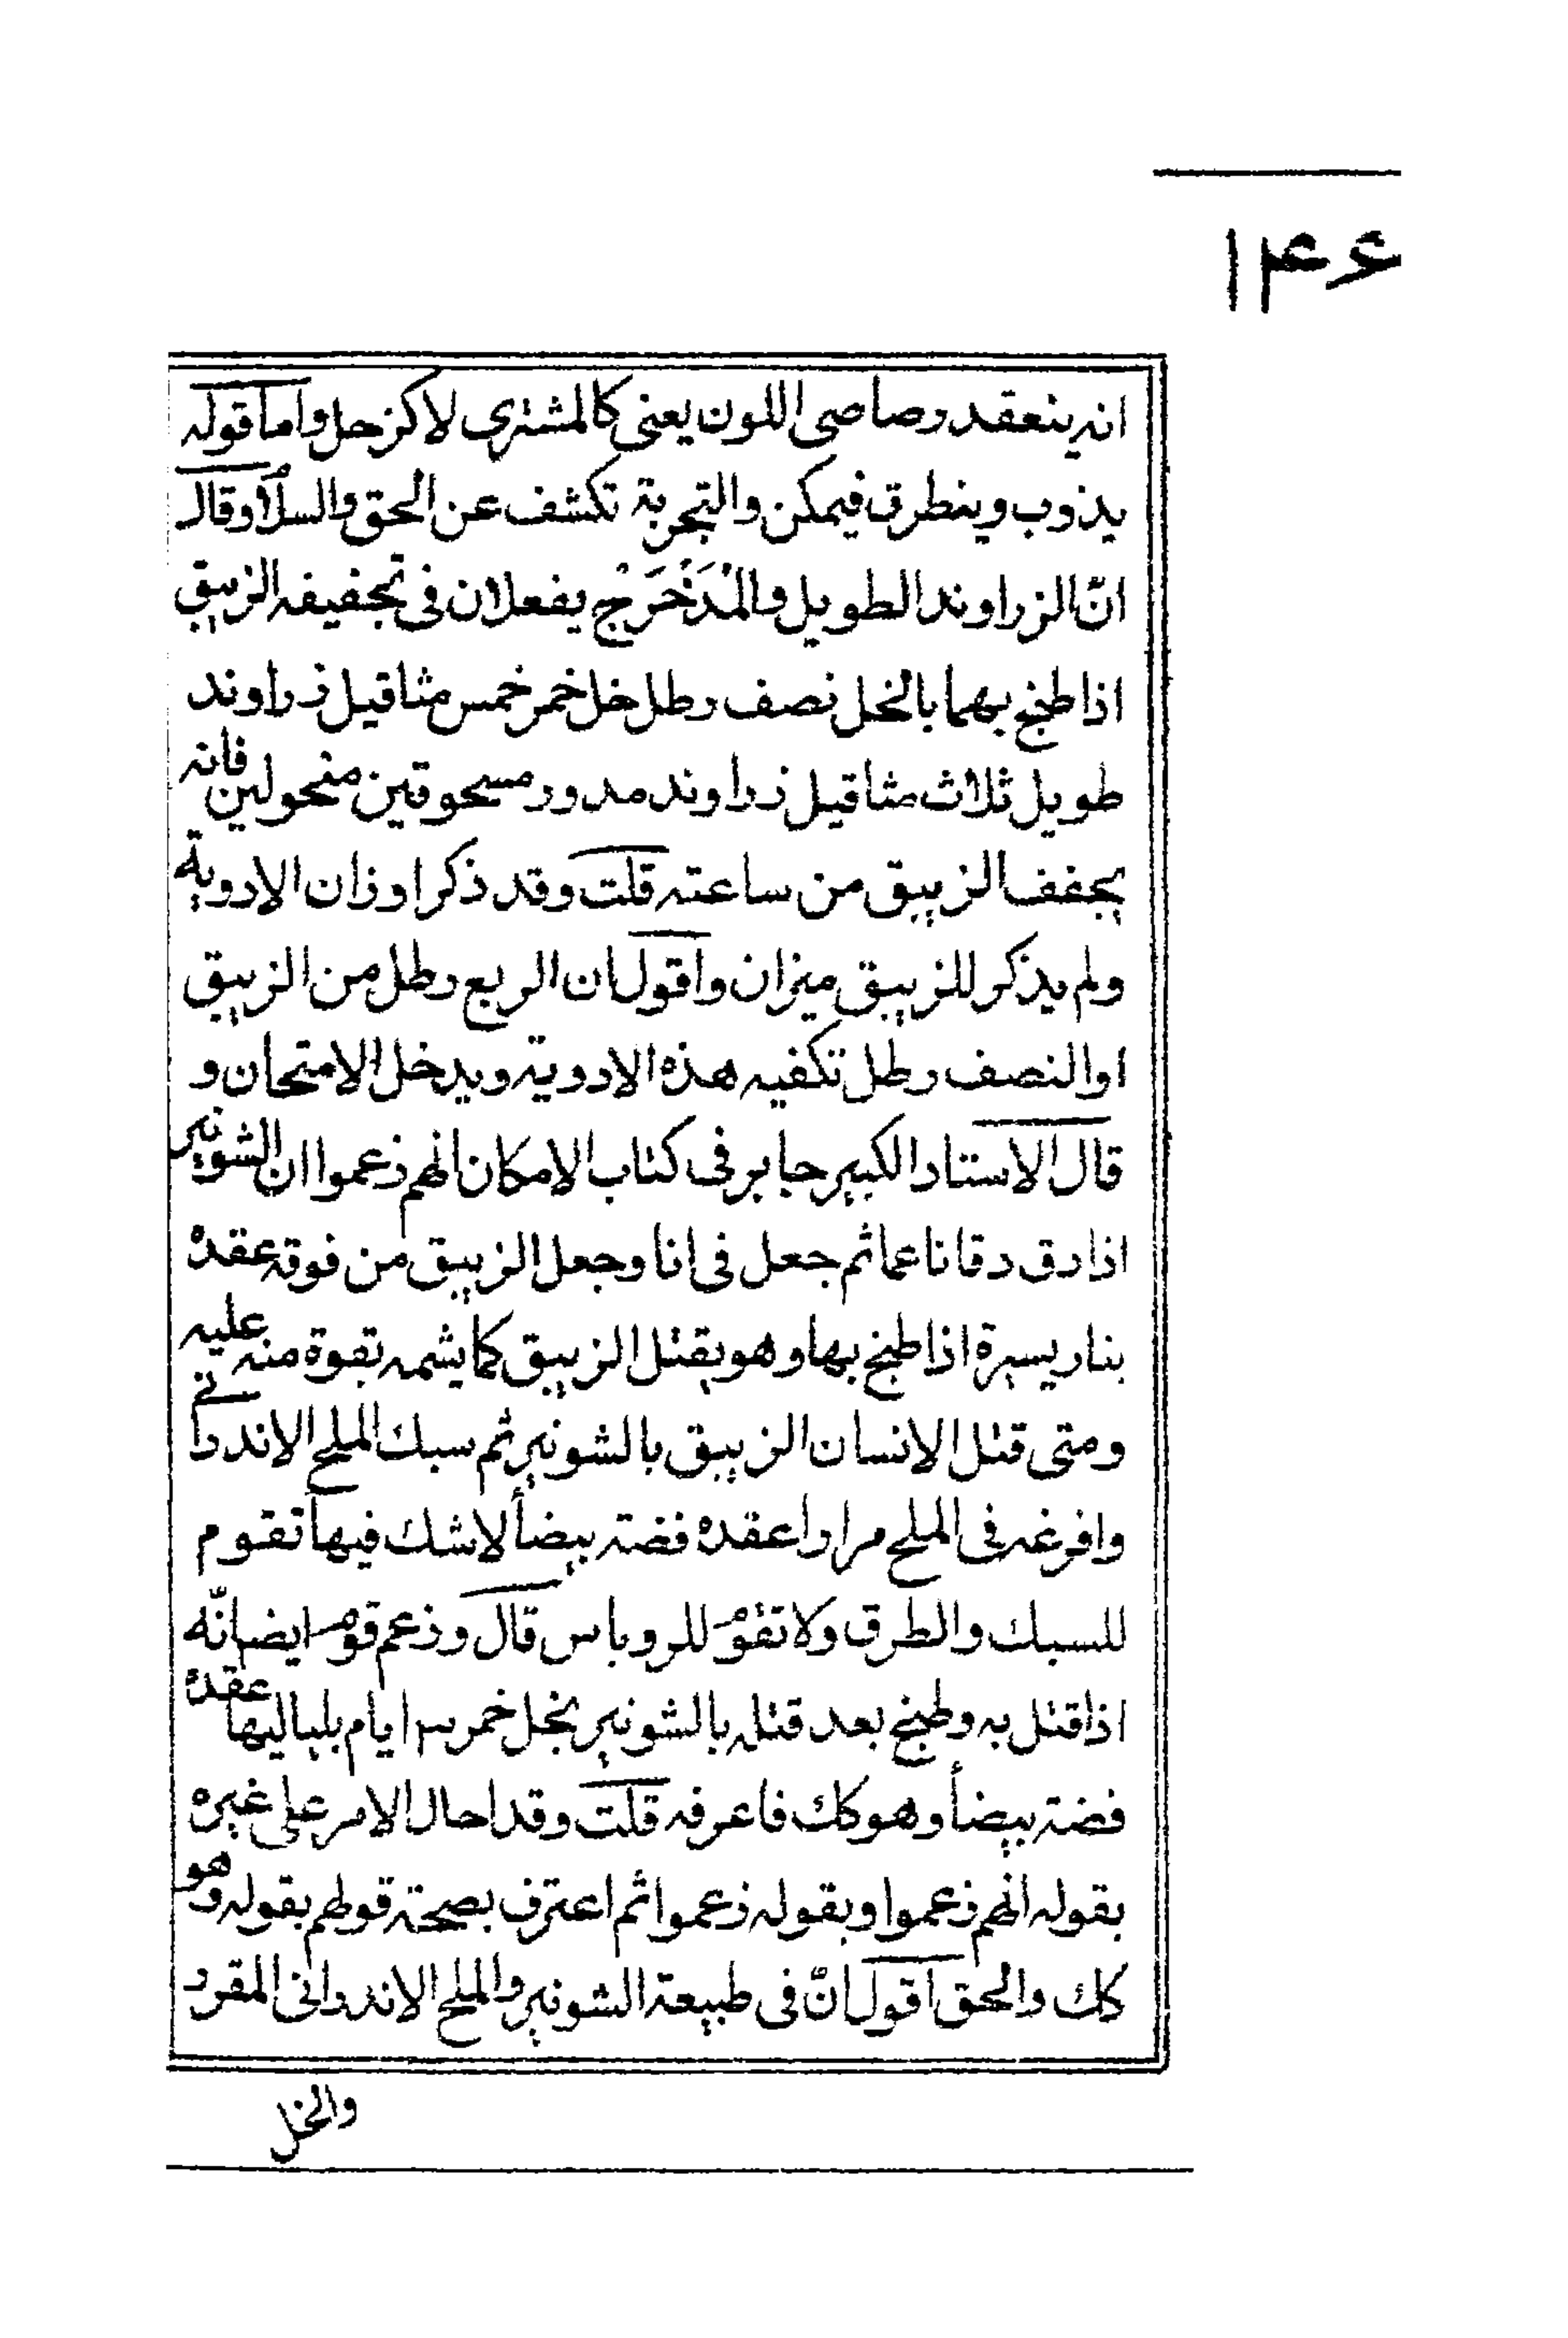 ۱۴۶
انه ينعقد رصاصى اللون يعنى كالمشترى لا كزحل واما قوله
يذوب وينطرق فيمكن والتجربة تكشف عن الحق والسلام وقال
انّ الزراوند الطويل والمُدَحْرَجْ يفعلان فى تجفيفه الزيبق
اذا طبخ بهما بالخل نصف رطل خل خمر خمس مثاقيل زراوند
طويل ثلاث مثاقيل زراوند مدور مسحوقين منخولين فانه
يجفف الزيبق من ساعته قلت وقد ذكر اوزان الادوية
ولم يذكر للزيبق ميزان واقول ان الربع رطل من الزيبق
او النصف رطل تكفيه هذه الادوية ويدخل الامتحان و
قال الاستاد الكبير جابر فى كتاب الامكان انهم زعموا ان الشونيز
اذا دق دقا ناعما ثم جعل فى انا وجعل الزيبق من فوقه عقده
بنار يسيرة اذا طبخ بها وهو يقتل الزيبق كما يشمه بقوة منه عليه
ومتى قتل الانسان الزيبق بالشونيز ثم سبك الملح الاندرانى
وافرغه فى الملح مرارا عقده فضة بيضأ لا شك فيها تقوم
للسبك والطرق ولا تقوم للروباس قال وزعم قوم ايضا انّه
اذا قتل به وطبخ بعد قتله بالشونيز بخل خمر ۳ ايام بلياليها عقده
فضة بيضأ وهو كك فاعرفه قلت وقد احال الامر على غيره
بقوله انهم زعموا وبقوله زعموا ثم اعترف بصحة قولهم بقوله وهو
كك والحق اقول انّ فى طبيعة الشونيز والملح الاندرانى المقرر
والخل